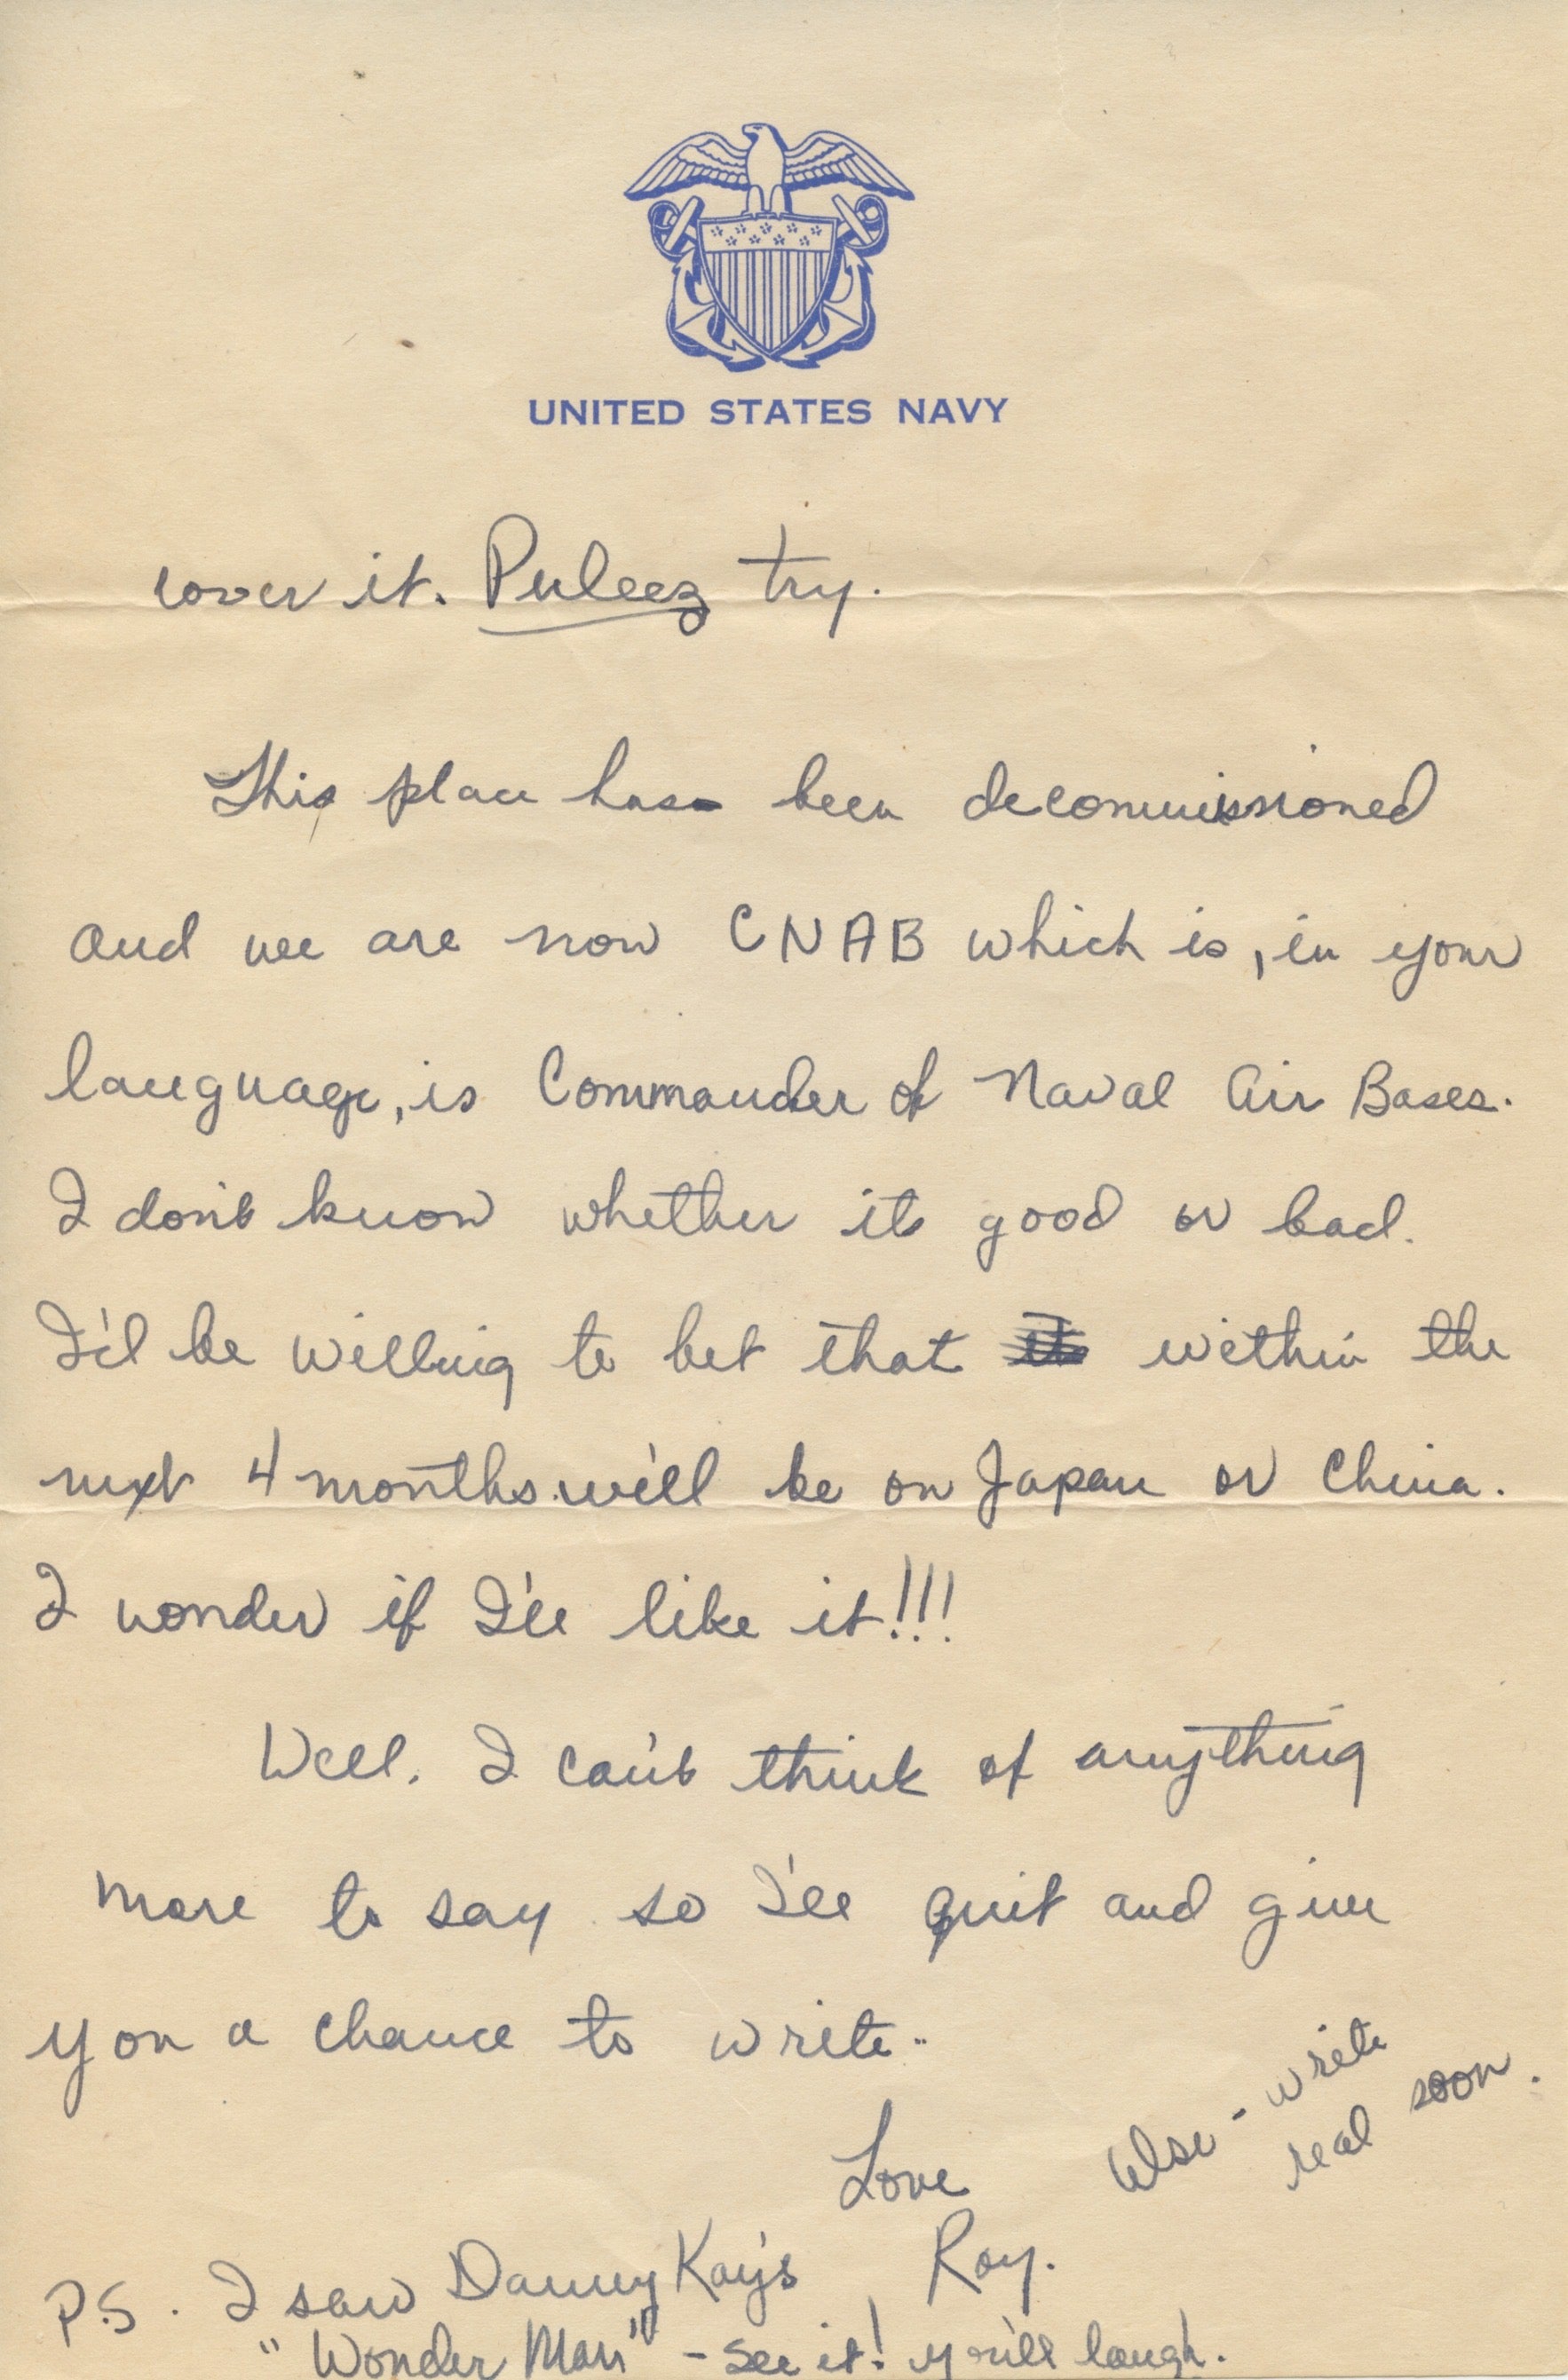 UNITED STATES NAVY
cover it. Puleez try.
This place has been decommissioned
and we are now CNAB which is, in your
language, is Commander of Naval Air Bases.
I don't know whether its good or bad.
I'd be willing to bet that it within the
next 4 months we'll be on Japan or China.
I wonder if I'll like it!!!
Well, I can't think of anything
more to say so I'll quit and give
you a chance to write..
Love
Roy.
Also - write
real soon.
P.S. I saw Danny Kay's
"Wonder Man" - see it! you'll laugh.